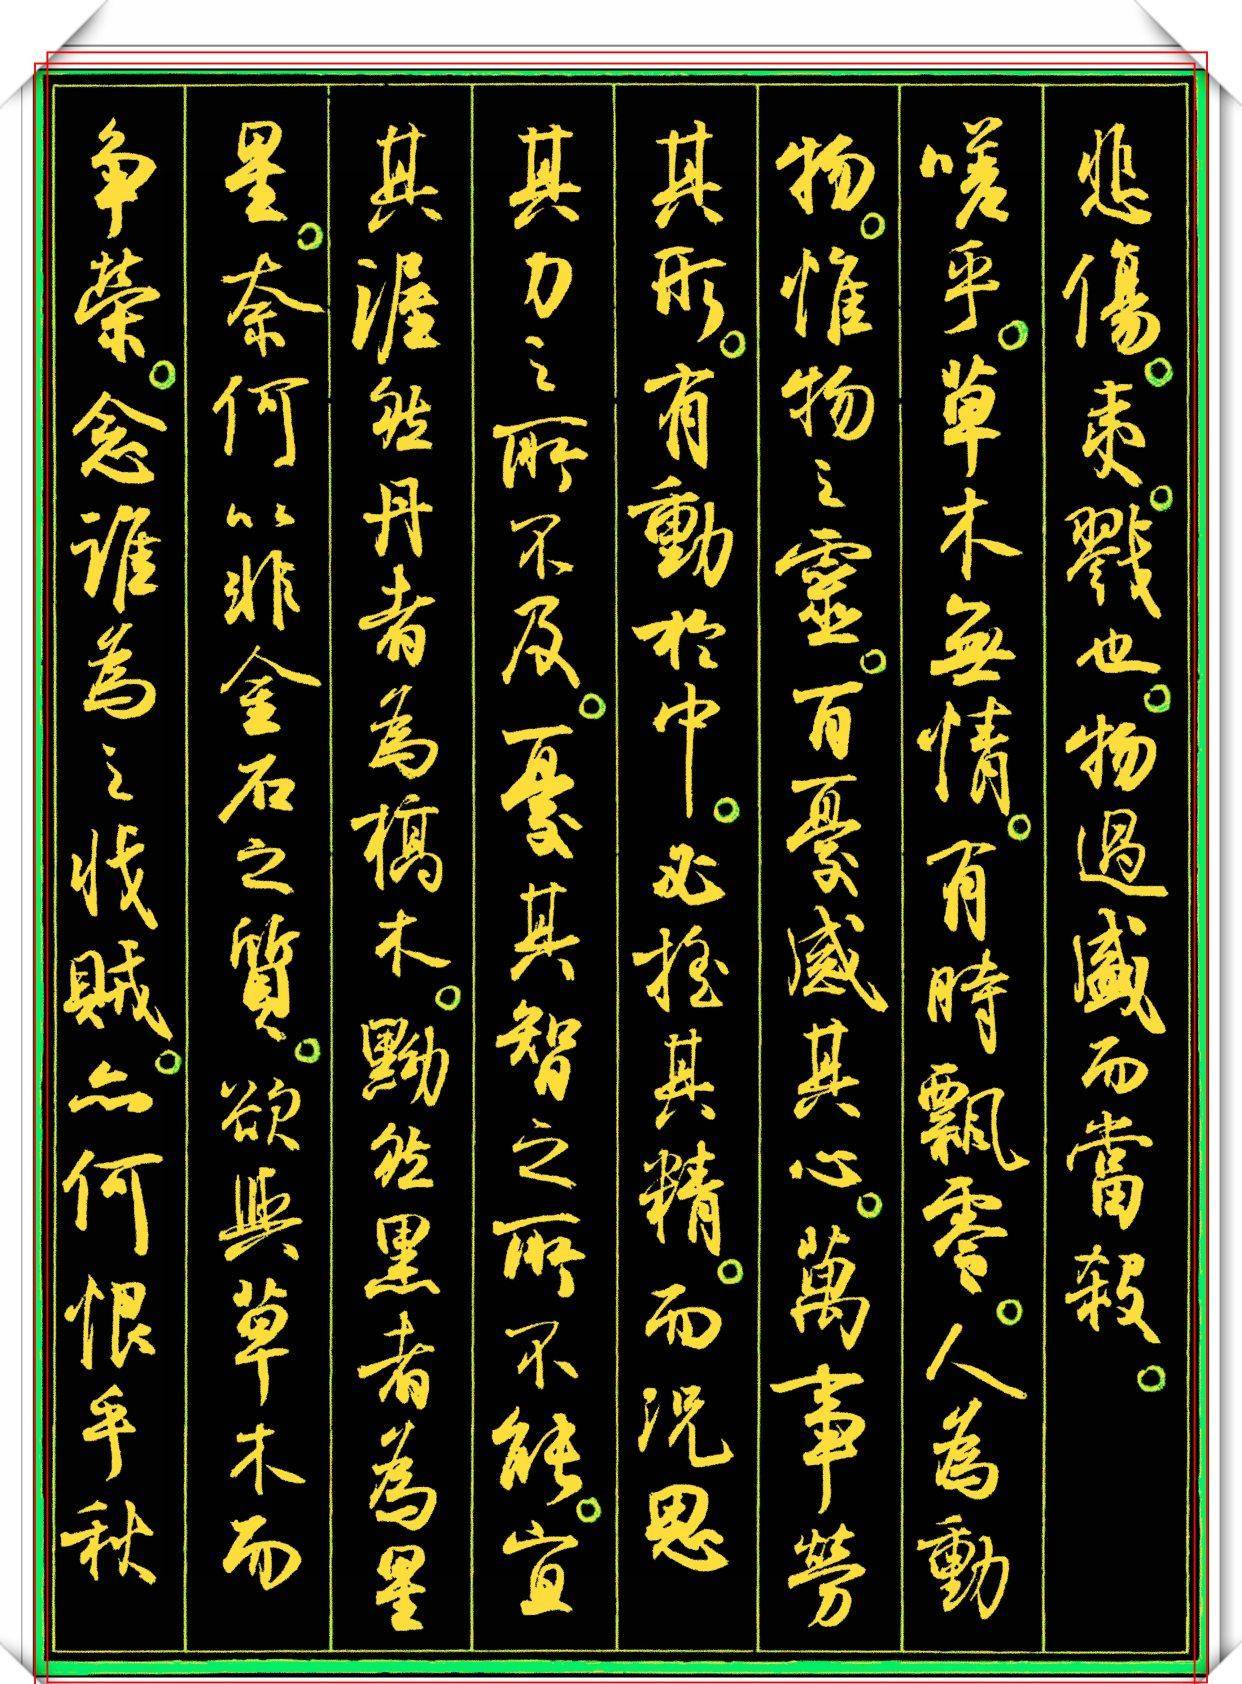 悲傷。夷。戮也。物過盛而當殺。
嗟乎。草木無情。有時飄零。人為動
物。惟物之靈。百憂感其心。萬事勞
其形。有動於中。必搖其精。而況思
其力之所不及。憂其智之所不能。宜
其渥然丹者為槁木。黝然黑者為星
星。奈何以非金石之質。欲與草木而
争榮。念誰為之戕賊。亦何恨乎秋